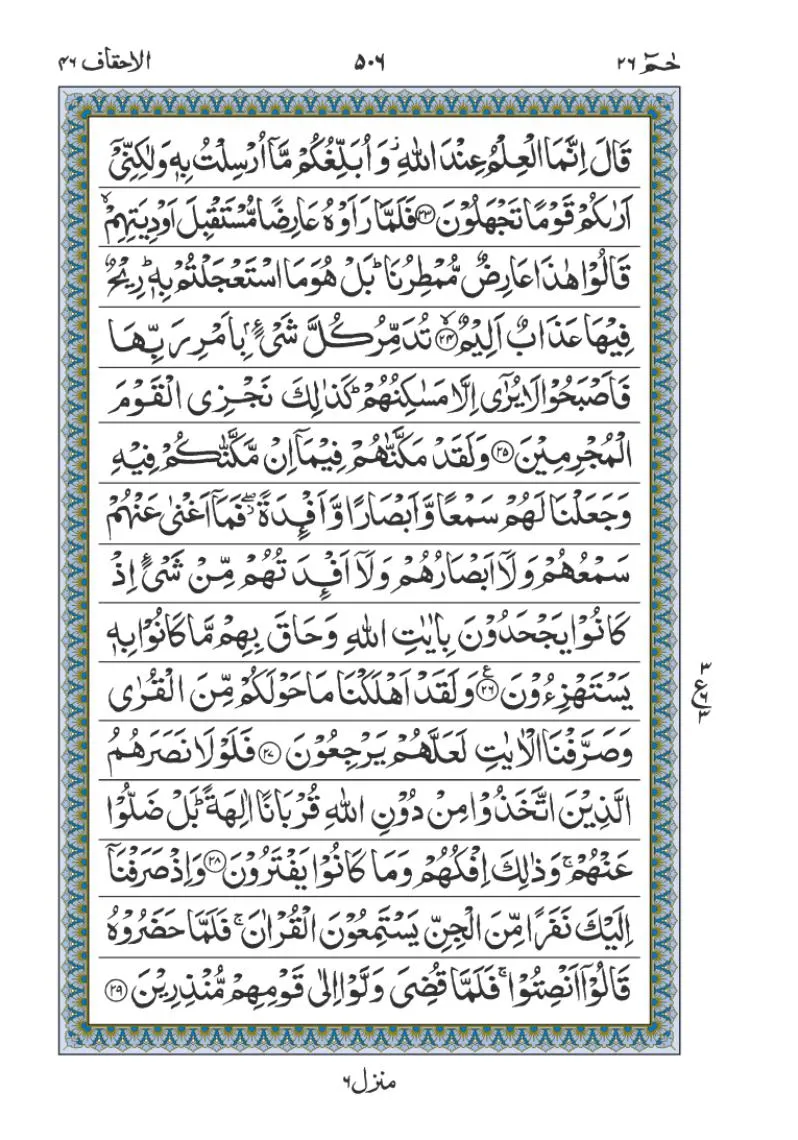 حٰمٓ ٢٦
٥٠٦
الاحقاف ٤٦
قَالَ اِنَّمَا الْعِلْمُ عِنْدَ اللّٰهِ ۖ وَ اُبَلِّغُكُمْ مَّاۤ اُرْسِلْتُ بِهٖ وَلٰكِنِّیْۤ
اَرٰىكُمْ قَوْمًا تَجْهَلُوْنَ ﴿٢٣﴾ فَلَمَّا رَاَوْهُ عَارِضًا مُّسْتَقْبِلَ اَوْدِیَتِهِمْ ۙ
قَالُوْا هٰذَا عَارِضٌ مُّمْطِرُنَا ؕ بَلْ هُوَ مَا اسْتَعْجَلْتُمْ بِهٖ ؕ رِیْحٌ
فِیْهَا عَذَابٌ اَلِیْمٌ ﴿٢٤﴾ ۙ تُدَمِّرُ كُلَّ شَیْءٍۭ بِاَمْرِ رَبِّهَا
فَاَصْبَحُوْا لَا یُرٰۤی اِلَّا مَسٰكِنُهُمْ ؕ كَذٰلِكَ نَجْزِی الْقَوْمَ
الْمُجْرِمِیْنَ ﴿٢٥﴾ وَلَقَدْ مَكَّنّٰهُمْ فِیْمَاۤ اِنْ مَّكَّنّٰكُمْ فِیْهِ
وَجَعَلْنَا لَهُمْ سَمْعًا وَّ اَبْصَارًا وَّ اَفْـِٕدَةً ۖؗ فَمَاۤ اَغْنٰی عَنْهُمْ
سَمْعُهُمْ وَلَاۤ اَبْصَارُهُمْ وَلَاۤ اَفْـِٕدَتُهُمْ مِّنْ شَیْءٍ اِذْ
كَانُوْا یَجْحَدُوْنَ بِاٰیٰتِ اللّٰهِ وَحَاقَ بِهِمْ مَّا كَانُوْا بِهٖ
یَسْتَهْزِءُوْنَ ﴿٢٦﴾ ع وَلَقَدْ اَهْلَكْنَا مَا حَوْلَكُمْ مِّنَ الْقُرٰی
٣
ع
٦
٣
وَصَرَّفْنَا الْاٰیٰتِ لَعَلَّهُمْ یَرْجِعُوْنَ ﴿٢٧﴾ فَلَوْ لَا نَصَرَهُمُ
الَّذِیْنَ اتَّخَذُوْا مِنْ دُوْنِ اللّٰهِ قُرْبَانًا اٰلِهَةً ؕ بَلْ ضَلُّوْا
عَنْهُمْ ۚ وَذٰلِكَ اِفْكُهُمْ وَمَا كَانُوْا یَفْتَرُوْنَ ﴿٢٨﴾ وَاِذْ صَرَفْنَاۤ
اِلَیْكَ نَفَرًا مِّنَ الْجِنِّ یَسْتَمِعُوْنَ الْقُرْاٰنَ ۚ فَلَمَّا حَضَرُوْهُ
قَالُوْۤا اَنْصِتُوْا ۚ فَلَمَّا قُضِیَ وَلَّوْا اِلٰی قَوْمِهِمْ مُّنْذِرِیْنَ ﴿٢٩﴾
منزل ٦